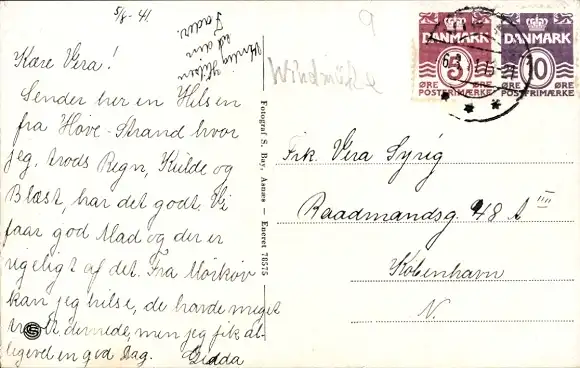 5/8-41.
Kære Vera!
Sender her en Hilsen
fra Høve-Strand hvor
jeg, trods Regn, Kulde og
Blæst, har det godt. Vi
faar god Mad og der er
rigeligt af det. Fra Mørkøv
kan jeg hilse, de havde meget
travlt dernede, men jeg fik al-
ligevel en god Dag. Gedda
Hilsen
til din
Fader.
Fotograf S. Bay, Asnæs — Eneret 78575
9
DANMARK
5
ØRE ØRE
POSTFRIMÆRKE
DANMARK
10
ØRE ØRE
POSTFRIMÆRKE
Frk. Vera Syrig
Raadmandsg. 48 A III
København
N.